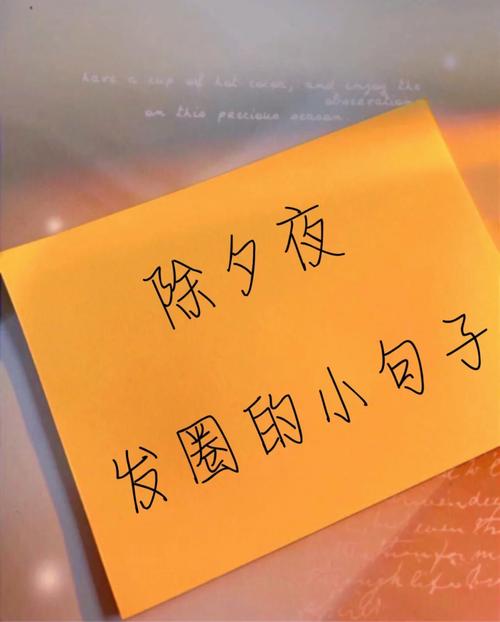 have a cup of hot cocoa, and enjoy the
observation
on this precious season.
除夕夜
发圈的小句子